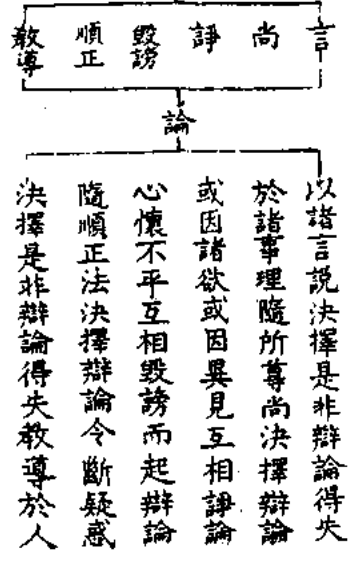 言
尚
諍
毀謗
順正
教導
論
以諸言説決擇是非辯論得失
於諸事理隨所尊尚決擇辯論
或因諸欲或因異見互相諍論
心懷不平互相毀謗而起辯論
隨順正法決擇辯論令斷疑惑
決擇是非辯論得失教導於人